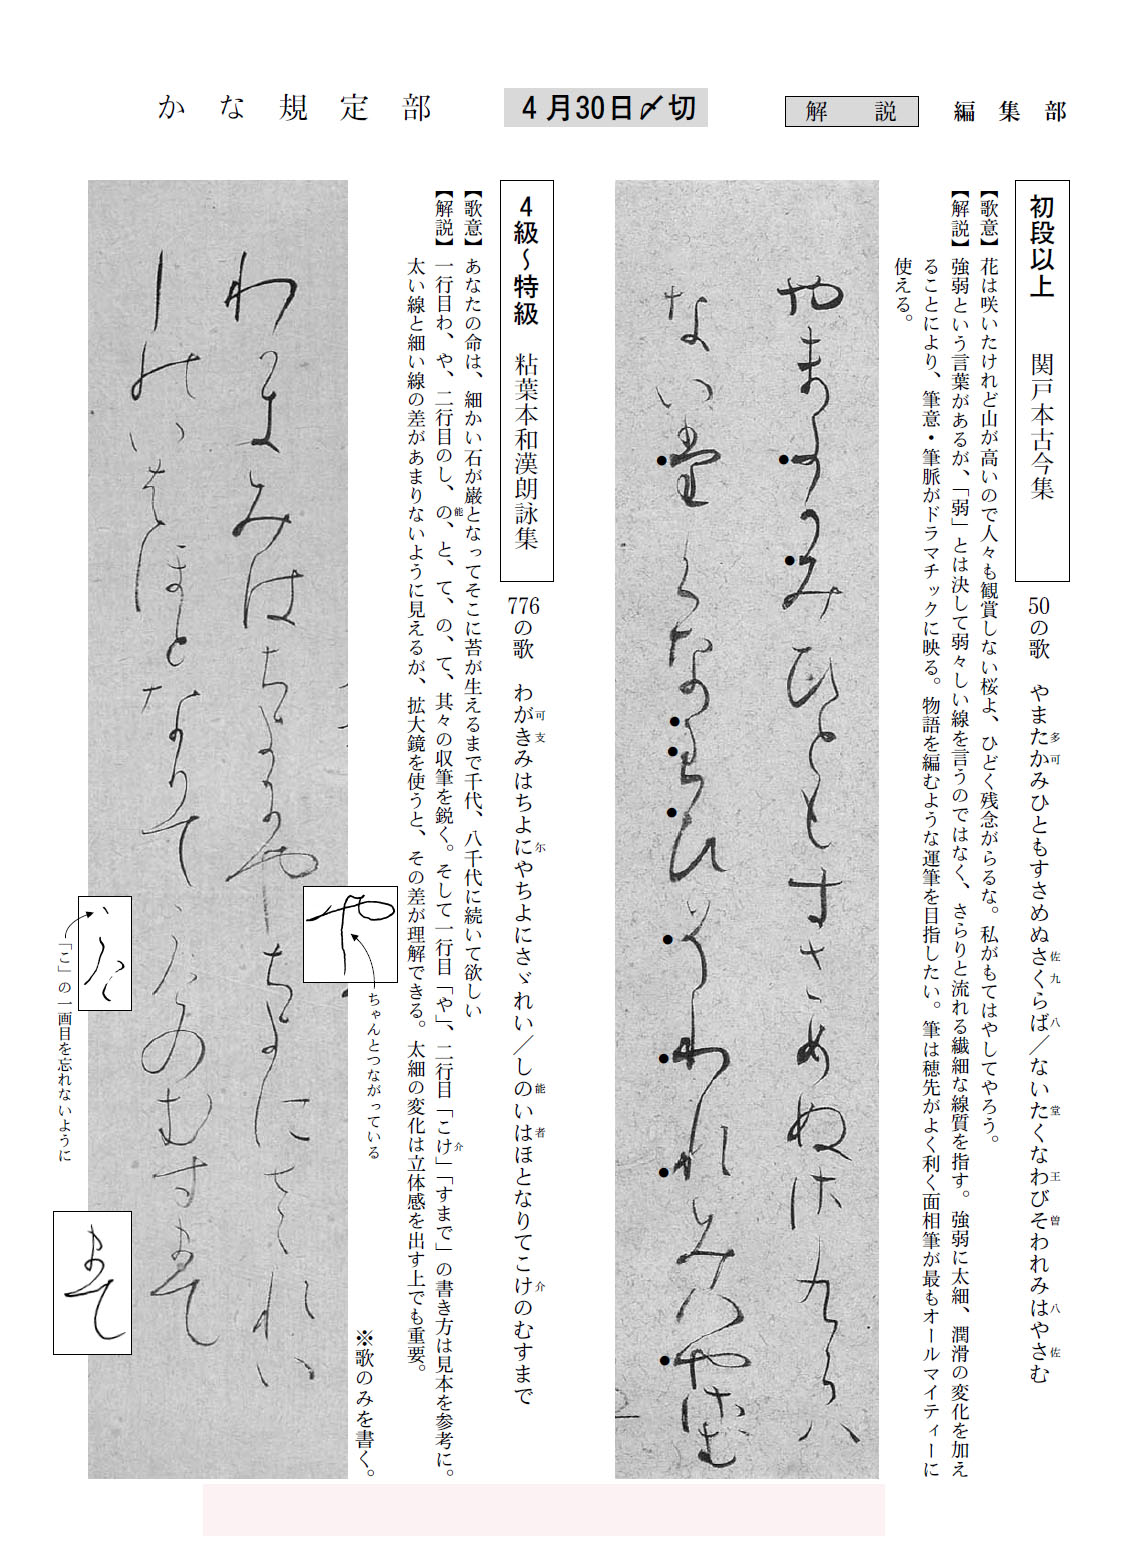 かな規定部
4月30日〆切
解説
編集部
初段以上 関戸本古今集
50の歌 やまたかみひともすさめぬさくらば／ないたくなわびそわれみはやさむ
多可
佐九
八
堂
王
曽
八
佐
【歌意】花は咲いたけれど山が高いので人々も観賞しない桜よ、ひどく残念がらるな。私がもてはやしてやろう。
【解説】強弱という言葉があるが、「弱」とは決して弱々しい線を言うのではなく、さらりと流れる繊細な線質を指す。強弱に太細、潤滑の変化を加え
ることにより、筆意・筆脈がドラマチックに映る。物語を編むような運筆を目指したい。筆は穂先がよく利く面相筆が最もオールマイティーに
使える。
やまたかみひともすさめぬさくらは
ないたくなわひそわれみはやさむ
4級～特級 粘葉本和漢朗詠集
776の歌 わがきみはちよにやちよにさゞれい／しのいはほとなりてこけのむすまで
可支
尓
能
者
介
【歌意】あなたの命は、細かい石が巌となってそこに苔が生えるまで千代、八千代に続いて欲しい
【解説】一行目わ、や、二行目のし、の、と、て、の、て、其々の収筆を鋭く。そして一行目「や」、二行目「こけ」「すまで」の書き方は見本を参考に。
能
介
太い線と細い線の差があまりないように見えるが、拡大鏡を使うと、その差が理解できる。太細の変化は立体感を出す上でも重要。
※歌のみを書く。
わかきみはちよにやちよにさゝれい
しのいはほとなりてこけのむすまて
や
ちゃんとつながっている
こけ
「こ」の一画目を忘れないように
まて